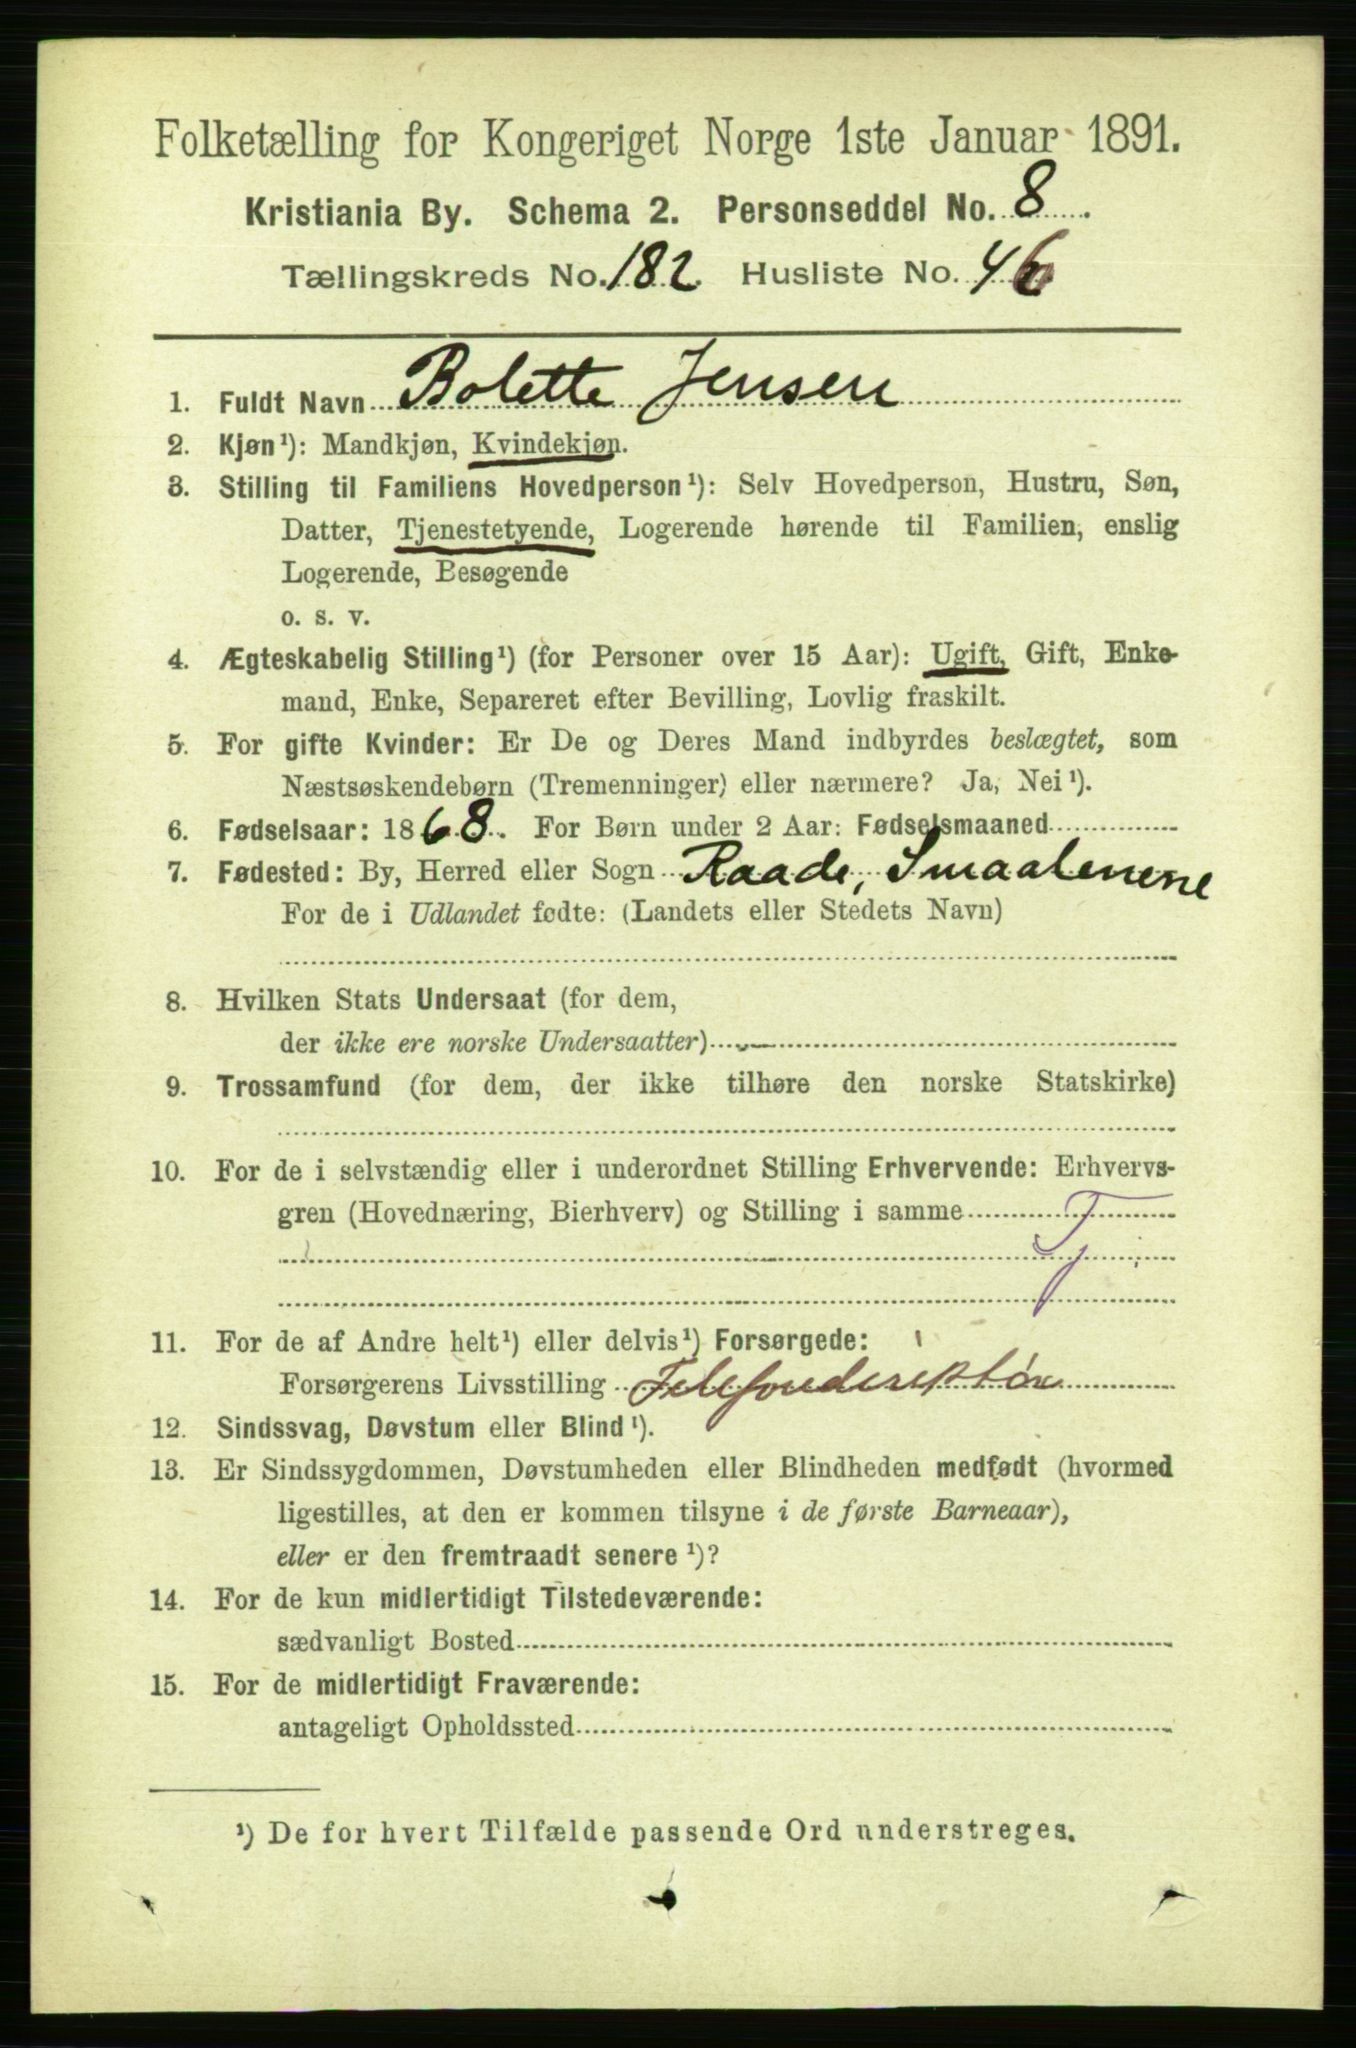 Folketælling for Kongeriget Norge 1ste Januar 1891.
Kristiania By. Schema 2. Personseddel No. 8.
Tællingskreds No. 182. Husliste No. 46
1. Fuldt Navn Bolette Jensen
2. Kjøn¹): Mandkjøn, Kvindekjøn.
3. Stilling til Familiens Hovedperson¹): Selv Hovedperson, Hustru, Søn,
Datter, Tjenestetyende, Logerende hørende til Familien, enslig
Logerende, Besøgende
o. s. v.
4. Ægteskabelig Stilling¹) (for Personer over 15 Aar): Ugift, Gift, Enke-
mand, Enke, Separeret efter Bevilling, Lovlig fraskilt.
5. For gifte Kvinder: Er De og Deres Mand indbyrdes beslægtet, som
Næstsøskendebørn (Tremenninger) eller nærmere? Ja, Nei¹).
6. Fødselsaar: 1868. For Børn under 2 Aar: Fødselsmaaned
7. Fødested: By, Herred eller Sogn Raade, Smaalenene
For de i Udlandet fødte: (Landets eller Stedets Navn)
8. Hvilken Stats Undersaat (for dem,
der ikke ere norske Undersaatter)
9. Trossamfund (for dem, der ikke tilhøre den norske Statskirke)
10. For de i selvstændig eller i underordnet Stilling Erhvervende: Erhvervs-
gren (Hovednæring, Bierhverv) og Stilling i samme
Tj
11. For de af Andre helt¹) eller delvis¹) Forsørgede:
Forsørgerens Livsstilling Telefondirektør
12. Sindssvag, Døvstum eller Blind¹).
13. Er Sindssygdommen, Døvstumheden eller Blindheden medfødt (hvormed
ligestilles, at den er kommen tilsyne i de første Barneaar),
eller er den fremtraadt senere¹)?
14. For de kun midlertidigt Tilstedeværende:
sædvanligt Bosted
15. For de midlertidigt Fraværende:
antageligt Opholdssted
¹) De for hvert Tilfælde passende Ord understreges.